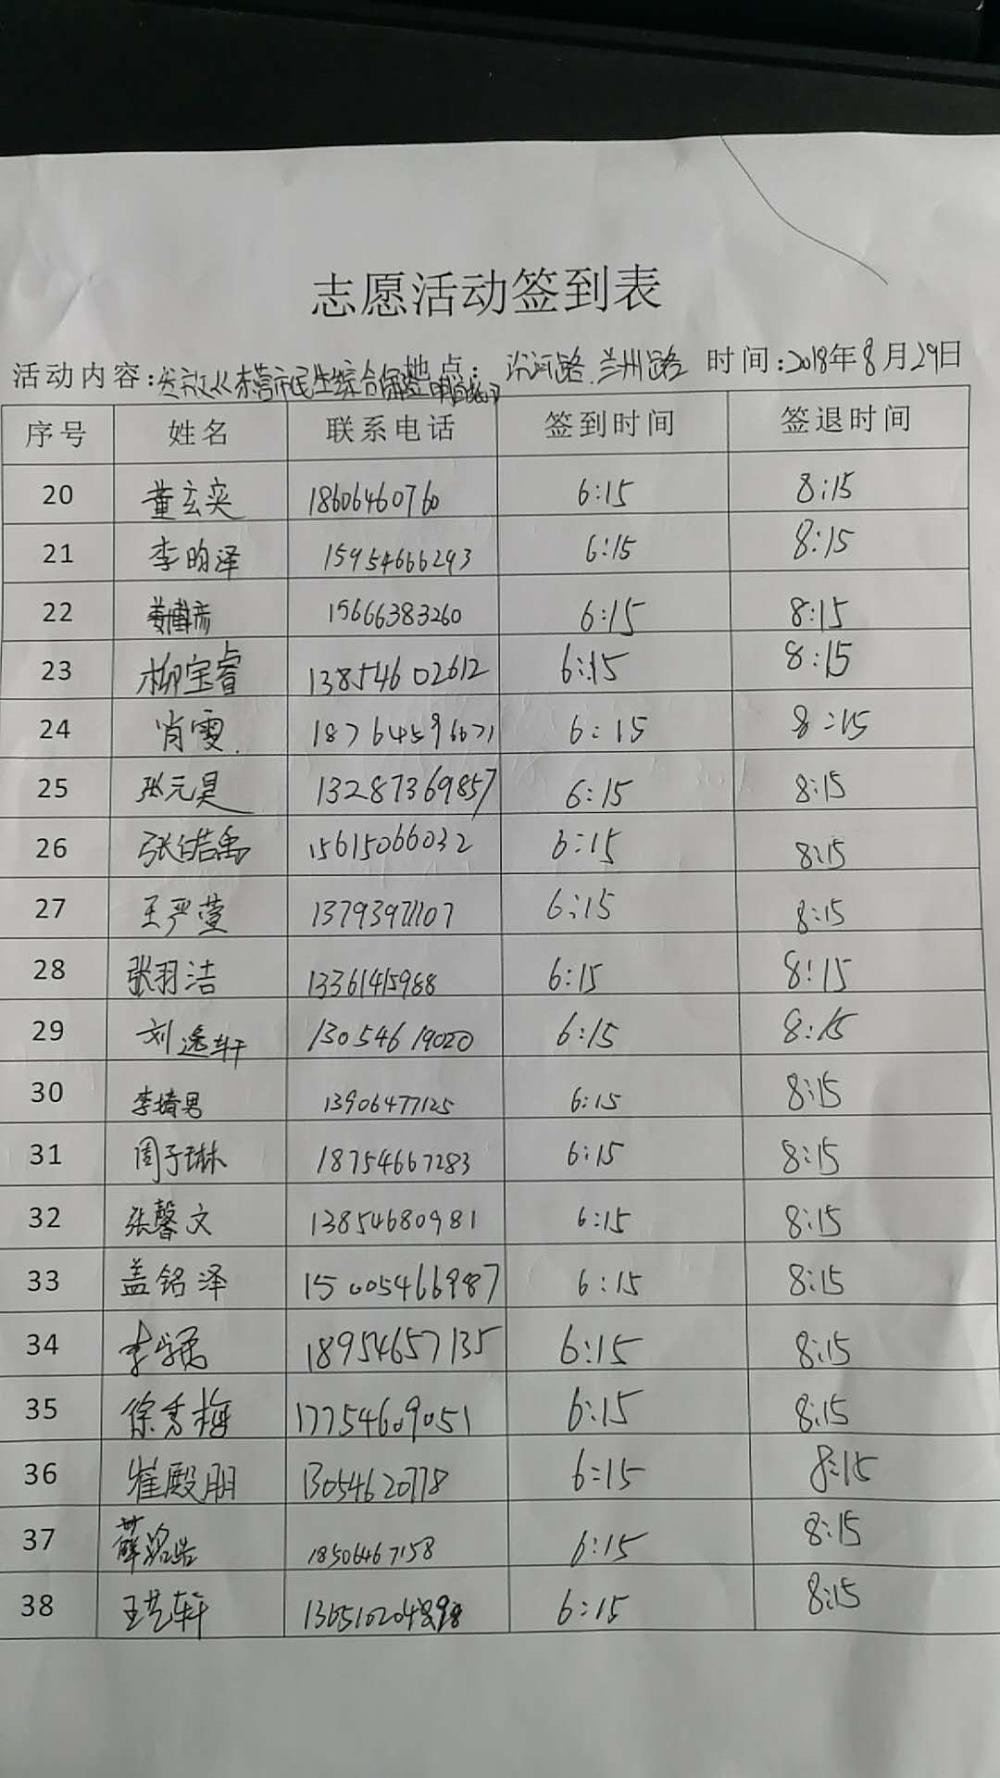 志愿活动签到表
活动内容:发放《东营市民生综合保险明白纸》 地点:汾河路、兰州路 时间:2018年8月29日
序号 姓名 联系电话 签到时间 签退时间
20 董玄奕 18606460760 6:15 8:15
21 李昀泽 15954666293 6:15 8:15
22 15666383260 6:15 8:15
23 柳宝睿 13854602612 6:15 8:15
24 肖雯 18764596671 6:15 8:15
25 张元昊 13287369857 6:15 8:15
26 张偌禹 15615066032 6:15 8:15
27 王严萱 13793971107 6:15 8:15
28 张羽洁 13361415988 6:15 8:15
29 刘逸轩 13054619020 6:15 8:15
30 李堉男 13906477125 6:15 8:15
31 周子琳 18754667283 6:15 8:15
32 张馨文 13854680981 6:15 8:15
33 盖铭泽 15005466987 6:15 8:15
34 18954657135 6:15 8:15
35 徐秀梅 17754609051 6:15 8:15
36 崔殿朋 13054620778 6:15 8:15
37 薛 18506467158 6:15 8:15
38 王艺轩 6:15 8:15